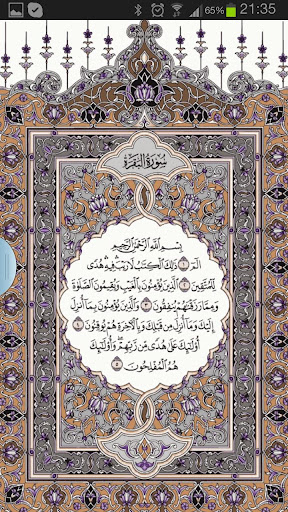 65% 21:35
سُورَةُ البَقَرَةِ
بِسْمِ اللَّهِ الرَّحْمَٰنِ الرَّحِيمِ
الٓمٓ ١ ذَٰلِكَ الْكِتَابُ لَا رَيْبَ ۛ فِيهِ ۛ هُدًى
لِّلْمُتَّقِينَ ٢ الَّذِينَ يُؤْمِنُونَ بِالْغَيْبِ وَيُقِيمُونَ الصَّلَاةَ
وَمِمَّا رَزَقْنَاهُمْ يُنفِقُونَ ٣ وَالَّذِينَ يُؤْمِنُونَ بِمَا أُنزِلَ
إِلَيْكَ وَمَا أُنزِلَ مِن قَبْلِكَ وَبِالْآخِرَةِ هُمْ يُوقِنُونَ ٤
أُولَٰئِكَ عَلَىٰ هُدًى مِّن رَّبِّهِمْ ۖ وَأُولَٰئِكَ
هُمُ الْمُفْلِحُونَ ٥